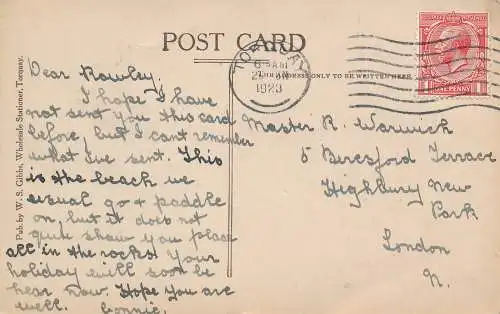 POST CARD
TORQUAY
6 15 AM
1923
THE ADDRESS ONLY TO BE WRITTEN HERE
ONE PENNY
Pub. by W. S. Gibbs, Wholesale Stationer, Torquay.
Dear Rowley,
I hope I have
not sent you this card
before, but I cant remember
what I've sent. This
is the beach we
usual go & paddle
on, but it does not
quite show you place
all in the rocks! Your
holiday will soon be
hear now. Hope you are
well. Connie.
Master R. Warwick
5 Beresford Terrace
Highbury New
Park
London
N.